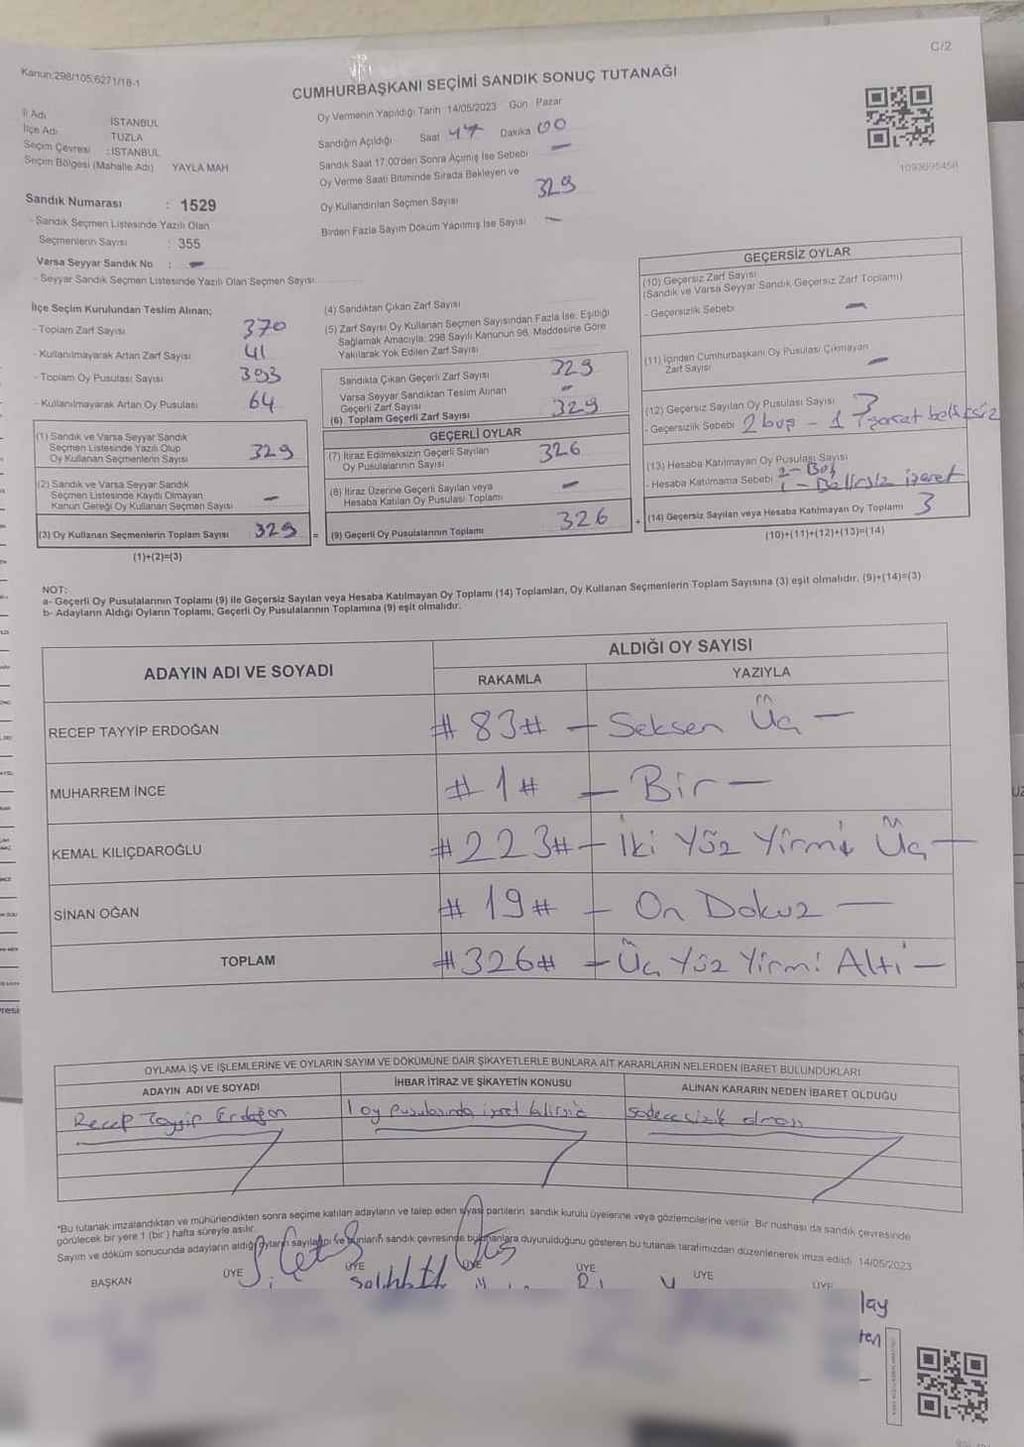 C/2
Kanun:298/105,6271/18-1
CUMHURBAŞKANI SEÇİMİ SANDIK SONUÇ TUTANAĞI
İl Adı : İSTANBUL
İlçe Adı : TUZLA
Seçim Çevresi : İSTANBUL
Seçim Bölgesi (Mahalle Adı) YAYLA MAH
Sandık Numarası : 1529
- Sandık Seçmen Listesinde Yazılı Olan
Seçmenlerin Sayısı : 355
Varsa Seyyar Sandık No : -
- Seyyar Sandık Seçmen Listesinde Yazılı Olan Seçmen Sayısı
Oy Vermenin Yapıldığı Tarih: 14/05/2023 Gün: Pazar
Sandığın Açıldığı Saat Dakika 00
Sandık Saat 17:00'den Sonra Açılmış İse Sebebi -
Oy Verme Saati Bitiminde Sırada Bekleyen ve
Oy Kullandırılan Seçmen Sayısı 329
Birden Fazla Sayım Döküm Yapılmış İse Sayısı -
1093695458
İlçe Seçim Kurulundan Teslim Alınan;
- Toplam Zarf Sayısı 370
- Kullanılmayarak Artan Zarf Sayısı 41
- Toplam Oy Pusulası Sayısı 393
- Kullanılmayarak Artan Oy Pusulası 64
(1) Sandık ve Varsa Seyyar Sandık
Seçmen Listesinde Yazılı Olup
Oy Kullanan Seçmenlerin Sayısı 329
(2) Sandık ve Varsa Seyyar Sandık
Seçmen Listesinde Kayıtlı Olmayan
Kanun Gereği Oy Kullanan Seçmen Sayısı -
(3) Oy Kullanan Seçmenlerin Toplam Sayısı 329 =
(1)+(2)=(3)
(4) Sandıktan Çıkan Zarf Sayısı
(5) Zarf Sayısı Oy Kullanan Seçmen Sayısından Fazla İse, Eşitliği
Sağlamak Amacıyla; 298 Sayılı Kanunun 98. Maddesine Göre
Yakılarak Yok Edilen Zarf Sayısı
Sandıkta Çıkan Geçerli Zarf Sayısı 329
Varsa Seyyar Sandıktan Teslim Alınan
Geçerli Zarf Sayısı -
(6) Toplam Geçerli Zarf Sayısı 329
GEÇERLİ OYLAR
(7) İtiraz Edilmeksizin Geçerli Sayılan
Oy Pusulalarının Sayısı 326
(8) İtiraz Üzerine Geçerli Sayılan veya
Hesaba Katılan Oy Pusulası Toplamı -
(9) Geçerli Oy Pusulalarının Toplamı 326 +
GEÇERSİZ OYLAR
(10) Geçersiz Zarf Sayısı
(Sandık ve Varsa Seyyar Sandık Geçersiz Zarf Toplamı)
- Geçersizlik Sebebi: -
(11) İçinden Cumhurbaşkanı Oy Pusulası Çıkmayan
Zarf Sayısı -
(12) Geçersiz Sayılan Oy Pusulası Sayısı 3
- Geçersizlik Sebebi 2 boş - 1 işaret belirsiz
(13) Hesaba Katılmayan Oy Pusulası Sayısı
2 - Boş
- Hesaba Katılmama Sebebi 1 - Belirsiz işaret
(14) Geçersiz Sayılan veya Hesaba Katılmayan Oy Toplamı 3
(10)+(11)+(12)+(13)=(14)
NOT:
a- Geçerli Oy Pusulalarının Toplamı (9) ile Geçersiz Sayılan veya Hesaba Katılmayan Oy Toplamı (14) Toplamları, Oy Kullanan Seçmenlerin Toplam Sayısına (3) eşit olmalıdır. (9)+(14)=(3)
b- Adayların Aldığı Oyların Toplamı, Geçerli Oy Pusulalarının Toplamına (9) eşit olmalıdır.
ADAYIN ADI VE SOYADI ALDIĞI OY SAYISI
RAKAMLA YAZIYLA
RECEP TAYYİP ERDOĞAN #83# - Seksen Üç -
MUHARREM İNCE #1# - Bir -
KEMAL KILIÇDAROĞLU #223# - İki Yüz Yirmi Üç -
SİNAN OĞAN #19# - On Dokuz -
TOPLAM #326# - Üç Yüz Yirmi Altı -
OYLAMA İŞ VE İŞLEMLERİNE VE OYLARIN SAYIM VE DÖKÜMÜNE DAİR ŞİKAYETLERLE BUNLARA AİT KARARLARIN NELERDEN İBARET BULUNDUKLARI
ADAYIN ADI VE SOYADI İHBAR İTİRAZ VE ŞİKAYETİN KONUSU ALINAN KARARIN NEDEN İBARET OLDUĞU
Recep Tayyip Erdoğan 1 oy pusulasında
*Bu tutanak imzalandıktan ve mühürlendikten sonra seçime katılan adayların ve talep eden siyasi partilerin sandık kurulu üyelerine veya gözlemcilerine verilir. Bir nüshası da sandık çevresinde
görülecek bir yere 1 (bir) hafta süreyle asılır.
Sayım ve döküm sonucunda adayların aldığı oyların sayılarını ve bunların sandık çevresinde bulunanlara duyurulduğunu gösteren bu tutanak tarafımızdan düzenlenerek imza edildi. 14/05/2023
BAŞKAN ÜYE ÜYE ÜYE ÜYE ÜYE ÜYE